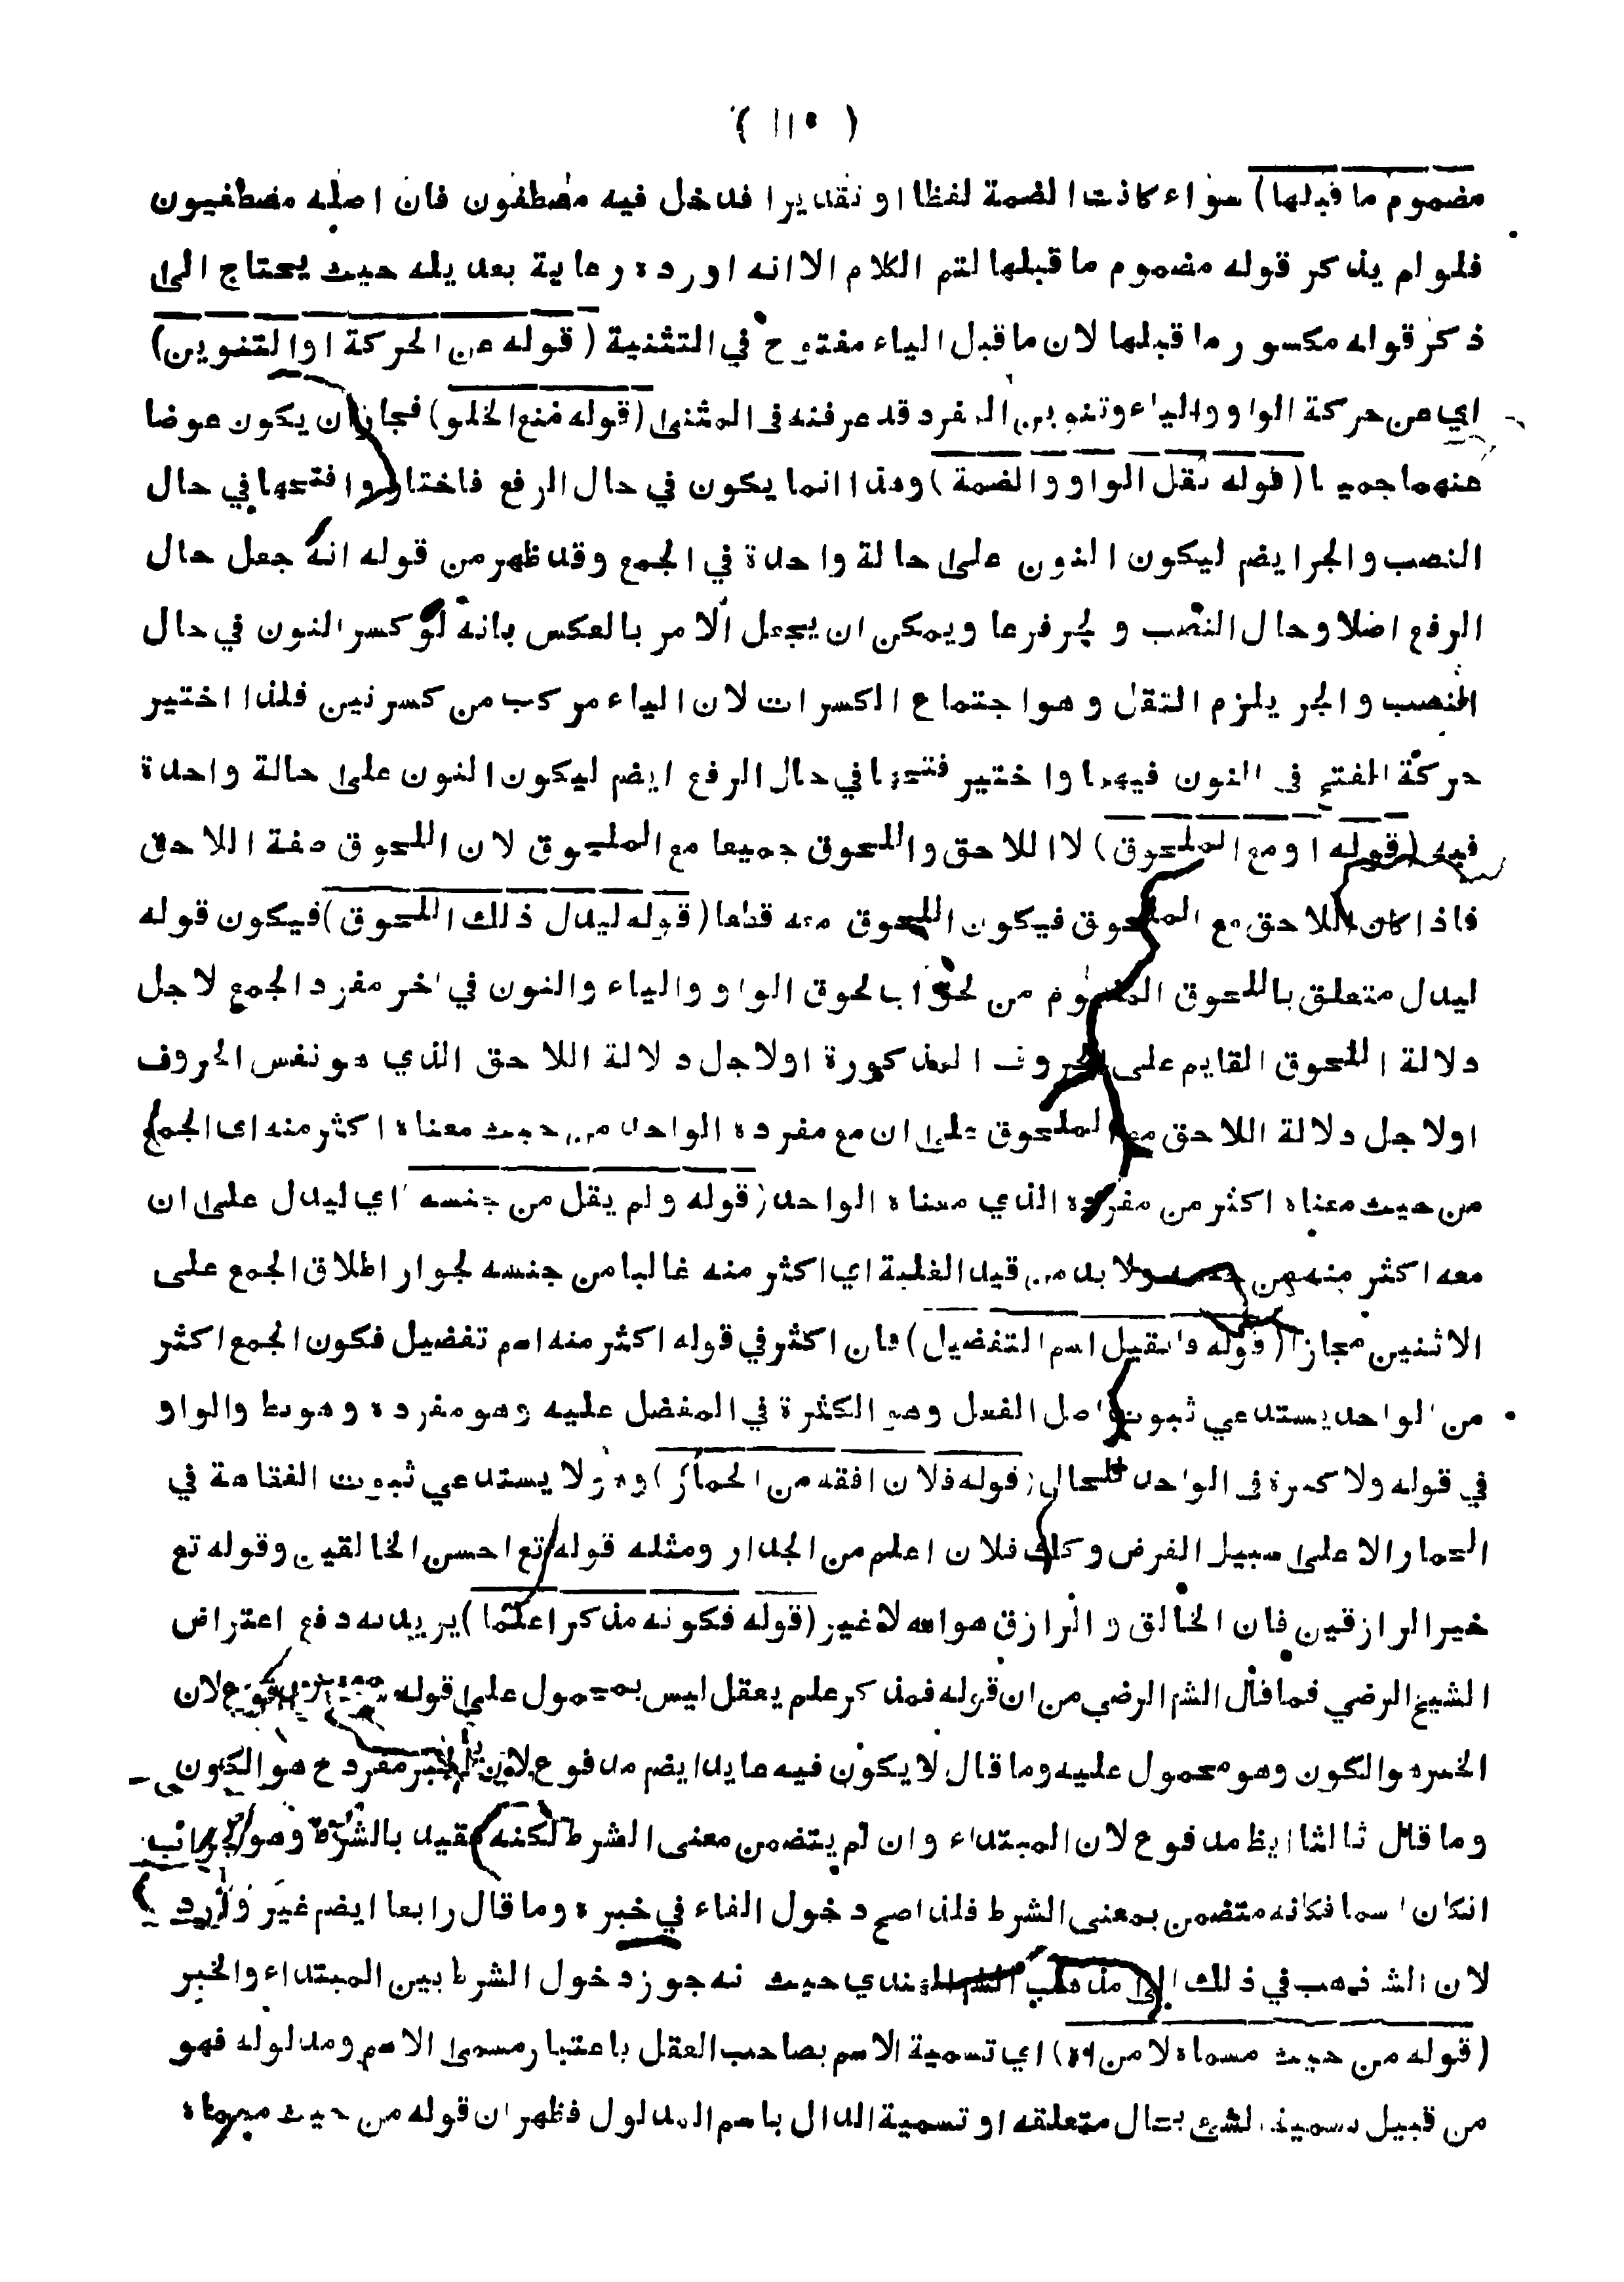 ( ١١٥ )
مضموم ما قبلها) سواء كانت الضمة لفظا او تقديرا فدخل فيه مصطفون فان اصله مصطفيون
فلو لم يذكر قوله مضموم ما قبلها لتم الكلام الا انه اورده رعاية بعديله حيث يحتاج الى
ذكر قوله مكسور ما قبلها لان ما قبل الياء مفتوح في التثنية (قوله عن الحركة او التنوين)
اي عن حركة الواو والياء وتنوين المفرد قد عرفته في المثنى (قوله منع الخلو) فجاز ان يكون عوضا
عنهما جميعا (قوله ثقل الواو والضمة) وهذا انما يكون في حال الرفع فاختاروا فتحها في حال
النصب والجر ايضم ليكون النون على حالة واحدة في الجمع وقد ظهر من قوله انه جعل حال
الرفع اصلا وحال النصب و لجر فرعا ويمكن ان يجعل الامر بالعكس بانه لو كسر النون في حال
النصب والجر يلزم الثقل وهو اجتماع الكسرات لان الياء مركب من كسرتين فلذا اختير
حركة الفتح في النون فيهما واختير فتحها في حال الرفع ايضم ليكون النون على حالة واحدة
فيه (قوله او مع الملحوق) لا اللاحق واللحوق جميعا مع الملحوق لان اللحوق صفة اللاحق
فاذا كان اللاحق مع الملحوق فيكون اللحوق معه قطعا (قوله ليدل ذلك اللحوق) فيكون قوله
ليدل متعلق باللحوق المفهوم من لحق اب لحوق الواو والياء والنون في اخر مفرد الجمع لاجل
دلالة اللحوق القايم على الحروف المذكورة اولاجل دلالة اللاحق الذي هو نفس الحروف
اولاجل دلالة اللاحق مع الملحوق على ان مع مفرده الواحد من حيث معناه اكثر منه اى الجمع
من حيث معناه اكثر من مفرده الذي معناه الواحد (قوله ولم يقل من جنسه) اي ليدل على ان
معه اكثر منه من جنسه ولا بد من قيد الغلبة اي اكثر منه غالبا من جنسه لجواز اطلاق الجمع على
الاثنين مجازا (قوله اسم التفضيل) فان اكثر في قوله اكثر منه اسم تفضيل فكون الجمع اكثر
من الواحد يستدعي ثبوت اصل الفعل وهو الكثرة في المفضل عليه وهو مفرده وهو بط والواو
في قوله ولا كثرة في الواحد للحال (قوله فلان افقه من الحمار) وهو لا يستدعي ثبوت الفقاهة في
الحمار الا على سبيل الفرض وكك فلان اعلم من الجدار ومثله قوله تع احسن الخالقين وقوله تع
خير الرازقين فان الخالق و الرازق هو الله لا غير (قوله فكونه مذكرا علما) يريد به دفع اعتراض
الشيخ الرضي فما قال الشم الرضي من ان قوله فمذكر علم يعقل ليس بمحمول على قوله لان
الخبر هو الكون وهو محمول عليه وما قال لا يكون فيه عايد ايضم مدفوع لان الخبر مفرد ع هو الكون
وما قال ثالثا ايظ مدفوع لان المبتداء وان لم يتضمن معنى الشرط لكنه مقيد بالشرط وهو
انكان اسما فكانه متضمن بمعنى الشرط فلذا صح دخول الفاء في خبره وما قال رابعا ايضم غير وارد
لان الش ذهب في ذلك الى مذهب الهندي حيث نه جوز دخول الشرط بين المبتداء والخبر
(قوله من حيث مسماه لا من اه) اي تسمية الاسم بصاحب العقل باعتبار مسمى الاسم ومدلوله فهو
من قبيل تسمية الشئ بحال متعلقه او تسمية الدال باسم المدلول فظهر ان قوله من حيث مسماه